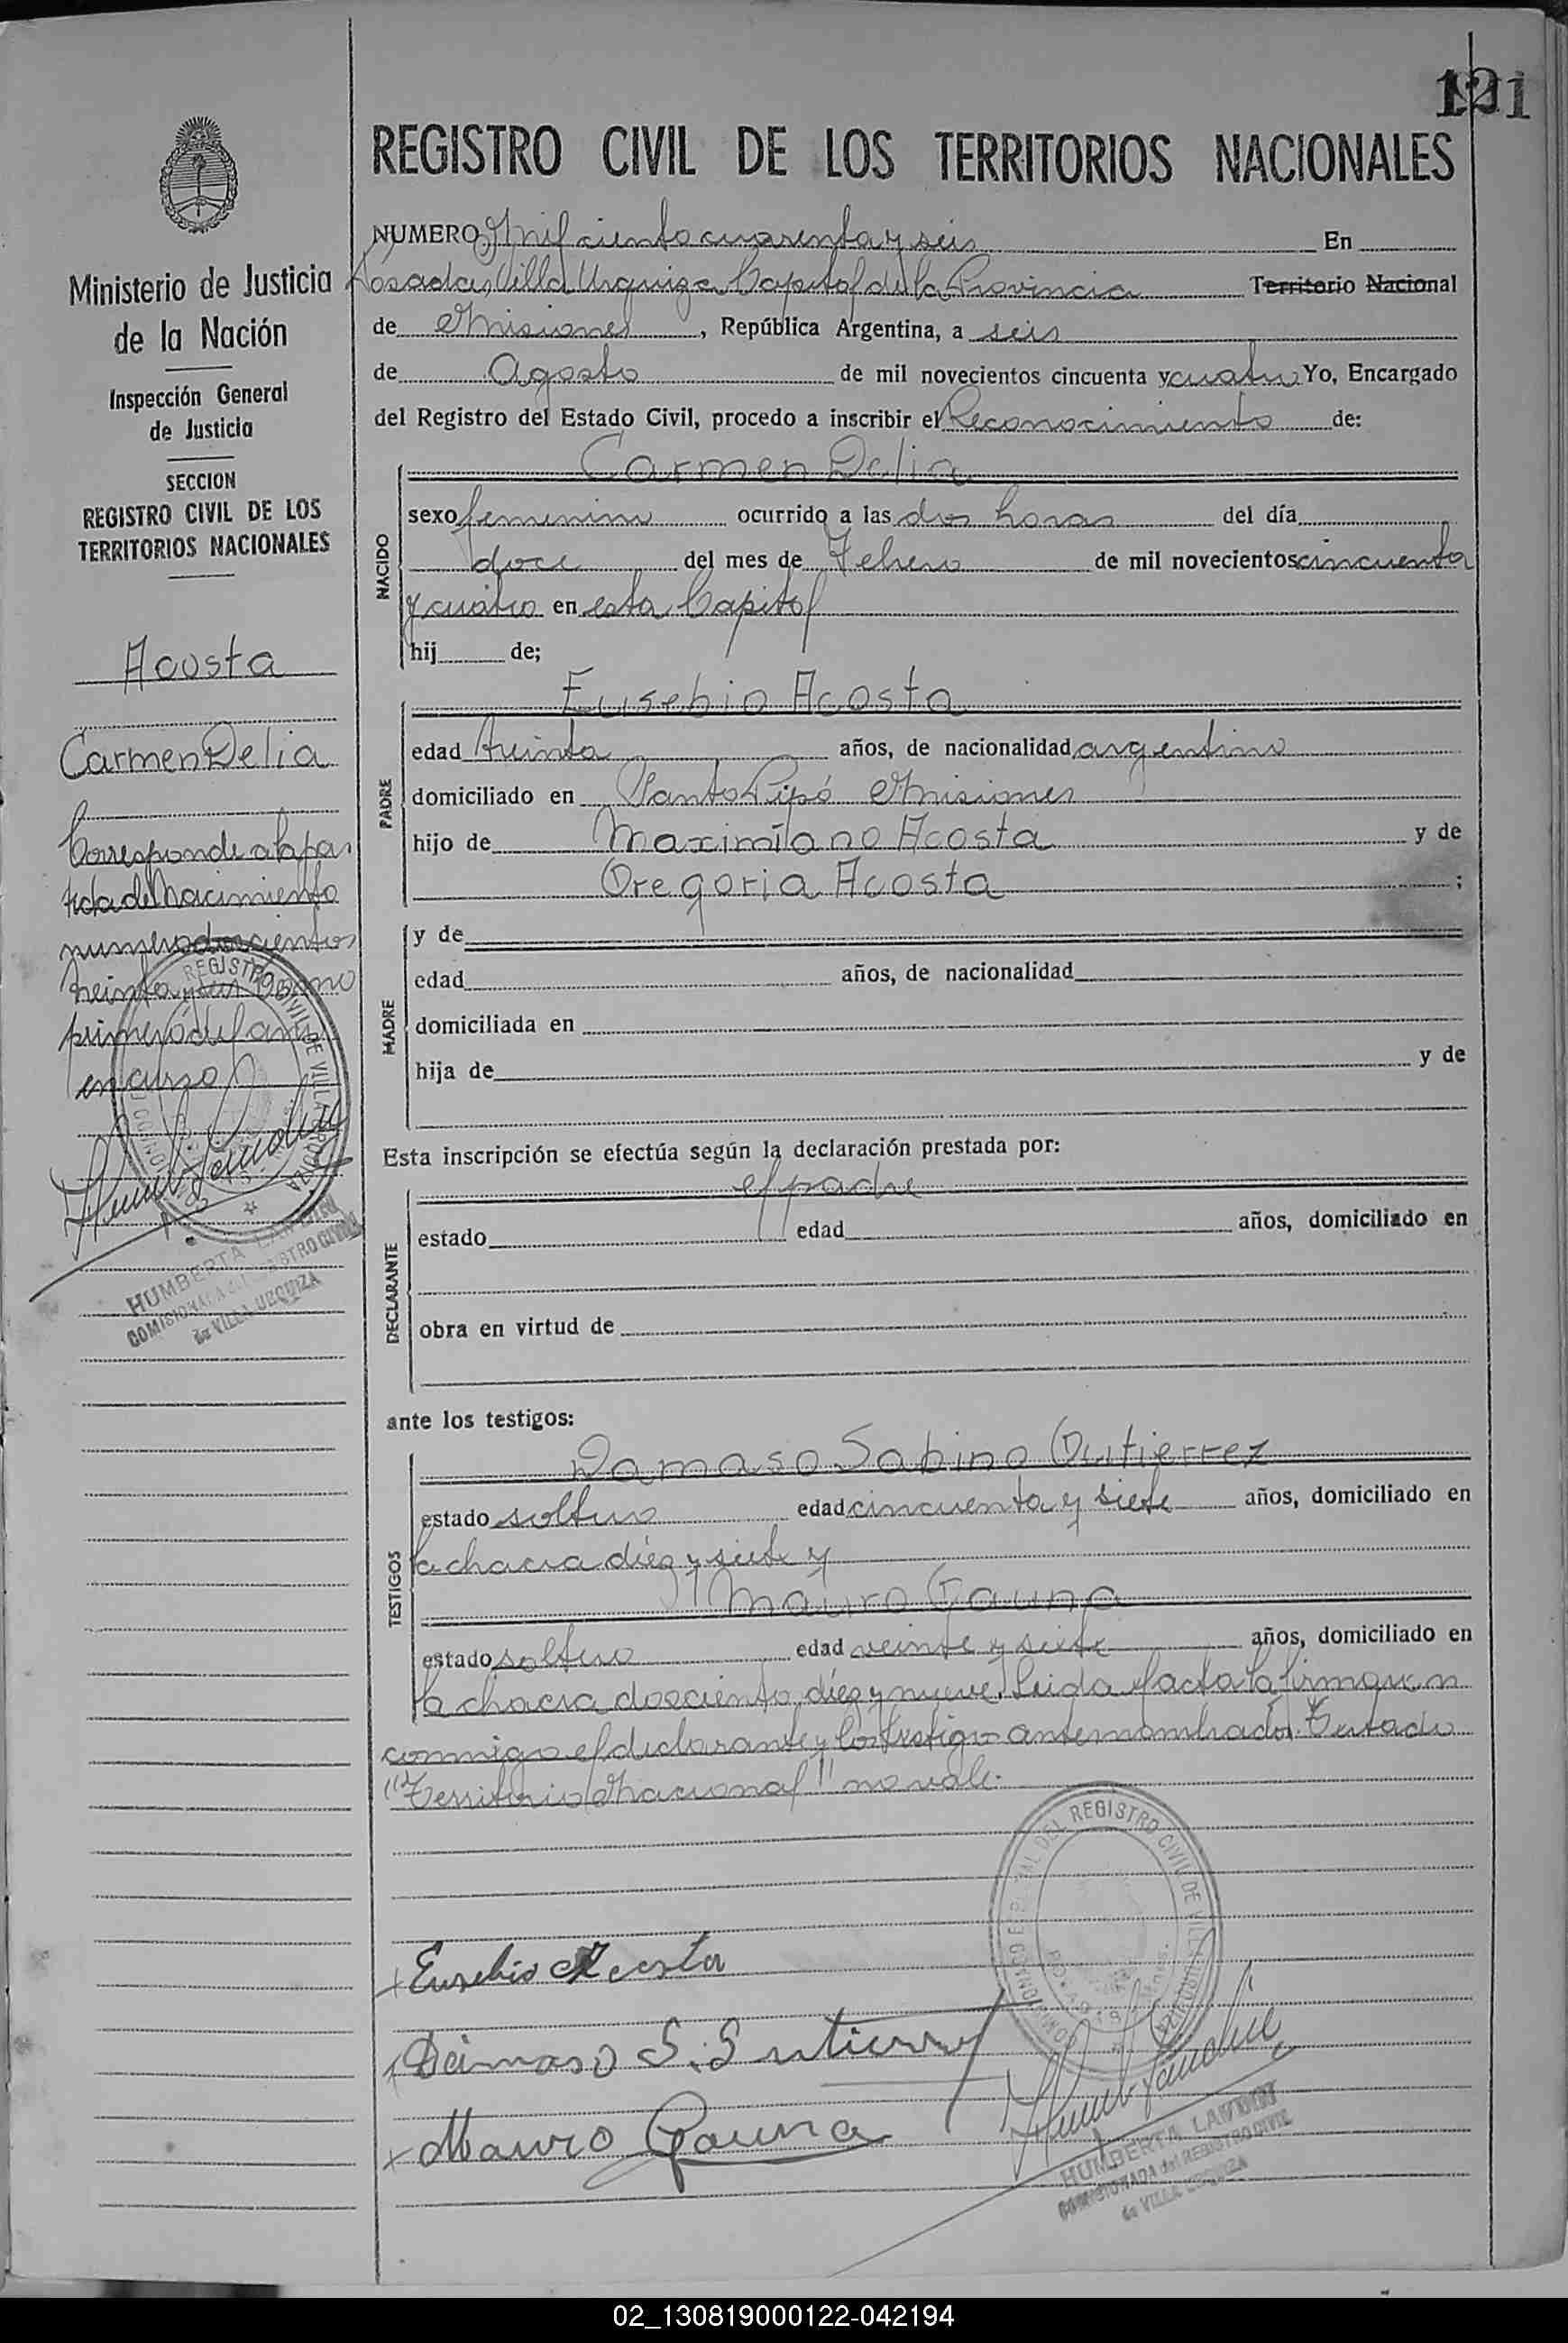 121
REGISTRO CIVIL DE LOS TERRITORIOS NACIONALES
Ministerio de Justicia
de la Nación
Inspección General
de Justicia
SECCION
REGISTRO CIVIL DE LOS
TERRITORIOS NACIONALES
Acosta
Carmen Delia
Corresponde a la par
tida de Nacimiento
numero doscientos
treinta y seis tomo
primero del año
en curso
REGISTRO CIVIL DE VILLA URQUIZA
HUMBERTA LANDINI
COMISIONADA del REGISTRO CIVIL
de VILLA URQUIZA
NUMERO Mil ciento cuarenta y seis En
Posadas, Villa Urquiza Capital de la Provincia Territorio Nacional
de Misiones, República Argentina, a seis
de Agosto de mil novecientos cincuenta y cuatro Yo, Encargado
del Registro del Estado Civil, procedo a inscribir el Reconocimiento de:
NACIDO
Carmen Delia
sexo femenino ocurrido a las dos horas del día
doce del mes de Febrero de mil novecientos cincuenta
y cuatro en esta Capital
hij de;
PADRE
Eusebio Acosta
edad treinta años, de nacionalidad argentino
domiciliado en Santo Pipó Misiones
hijo de Maximiano Acosta y de
Gregoria Acosta ;
MADRE
y de
edad años, de nacionalidad
domiciliada en
hija de y de
Esta inscripción se efectúa según la declaración prestada por:
DECLARANTE
el padre
estado edad años, domiciliado en
obra en virtud de
ante los testigos:
TESTIGOS
Damaso Sabino Gutierrez
estado soltero edad cincuenta y siete años, domiciliado en
la chacra diez y siete y
Mauro Gauna
estado soltero edad veinte y siete años, domiciliado en
la chacra doscientos diez y nueve. Leida el acta la firmaron
conmigo el declarante y los testigos antenombrados. Testado
"Territorio Nacional" no vale.
DEL REGISTRO CIVIL DE VILLA URQUIZA
Eusebio Acosta
Dámaso S. Gutierrez
Mauro Gauna
HUMBERTA LANDINI
COMISIONADA del REGISTRO CIVIL
de VILLA URQUIZA
02_130819000122-042194